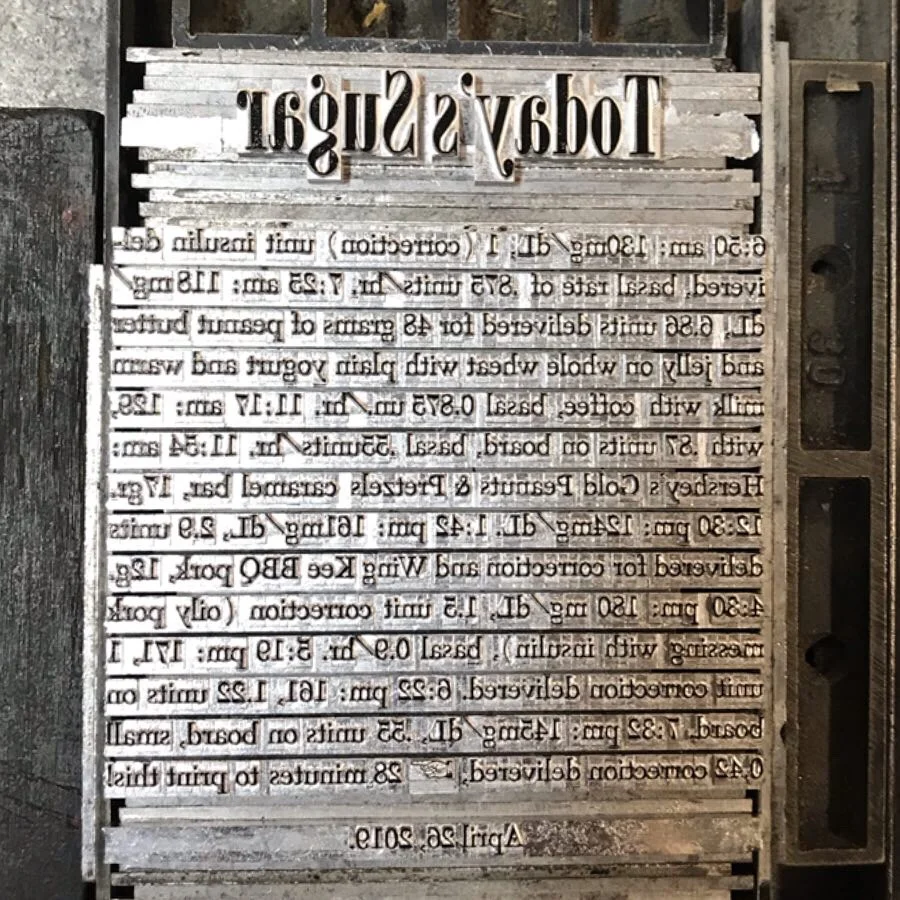 Today's Sugar
6:50 am: 130mg/dL; 1 (correction) unit insulin del-
ivered, basal rate of .875 units/hr. 7:25 am: 118 mg/
dL, 6.86 units delivered for 48 grams of peanut butter
and jelly on whole wheat with plain yogurt and warm
milk with coffee, basal 0.875 un./hr. 11:17 am: 129,
with .87 units on board, basal .55units/hr. 11:54 am:
Hershey's Gold Peanuts & Pretzels caramel bar, 17gr.
12:30 pm: 124mg/dL. 1:42 pm: 161mg/dL, 2.9 units
delivered for correction and Wing Kee BBQ pork, 12g.
4:30 pm: 180 mg/dL, 1.5 unit correction (oily pork
messing with insulin), basal 0.9/hr. 5:19 pm: 171, 1
unit correction delivered. 6:22 pm: 161, 1.22 units on
board. 7:32 pm: 145mg/dL, .55 units on board, small
0.42 correction delivered. 28 minutes to print this!
April 26, 2019.